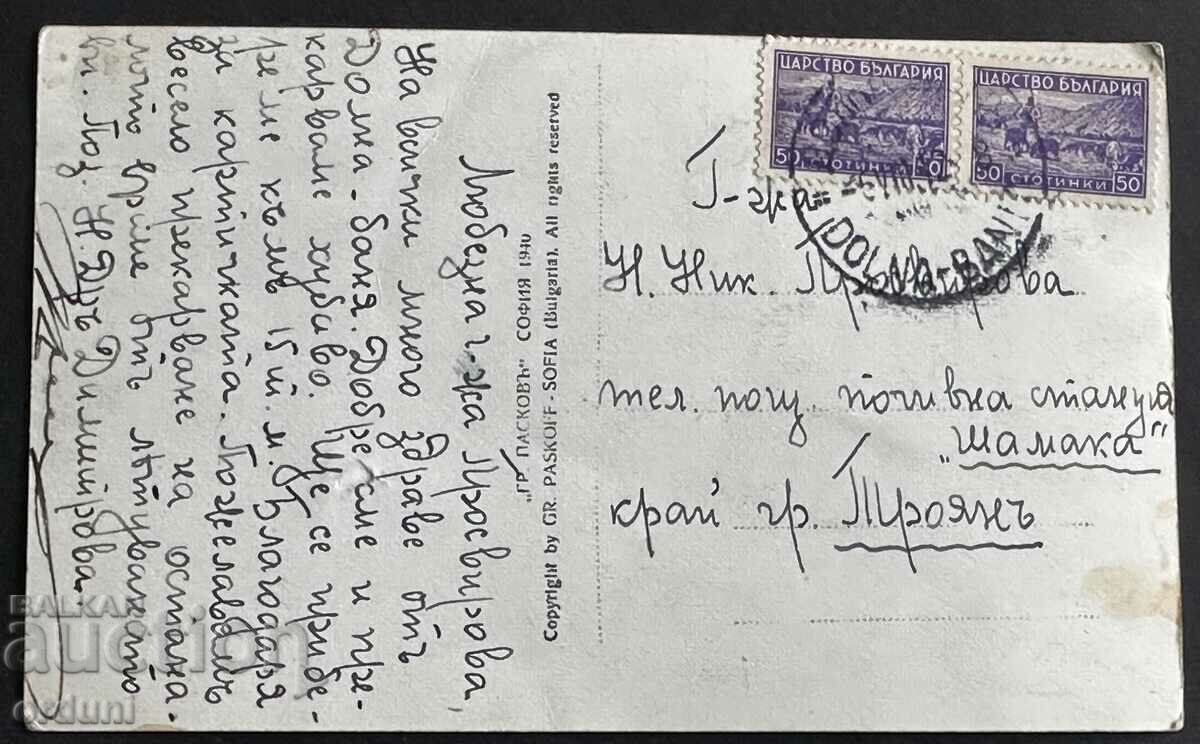 Любезна г-жа Просвирова,
На всички много здраве отъ
Долна-баня. Добре сме и пре-
карваме хубаво. Ще се прибе-
реме къмъ 15 й. м. Благодаря
за картичката. Пожелавамъ
весело прекарване на остана-
лото време отъ лѣтуването
Н. Дръ Димитрова.
"ГР. ПАСКОВЪ" СОФИЯ 1940
Copyright by GR. PASKOFF - SOFIA (Bulgaria). All rights reserved
ЦАРСТВО БЪЛГАРИЯ
50 СТОТИНКИ
ЦАРСТВО БЪЛГАРИЯ
50 СТОТИНКИ 50
DOLNA-BANIA
Г-жа
Н. Ник. Просвирова
тел. пощ. почивна станция
"Шамака"
край гр. Троянъ
BALKAN
auction
orduni